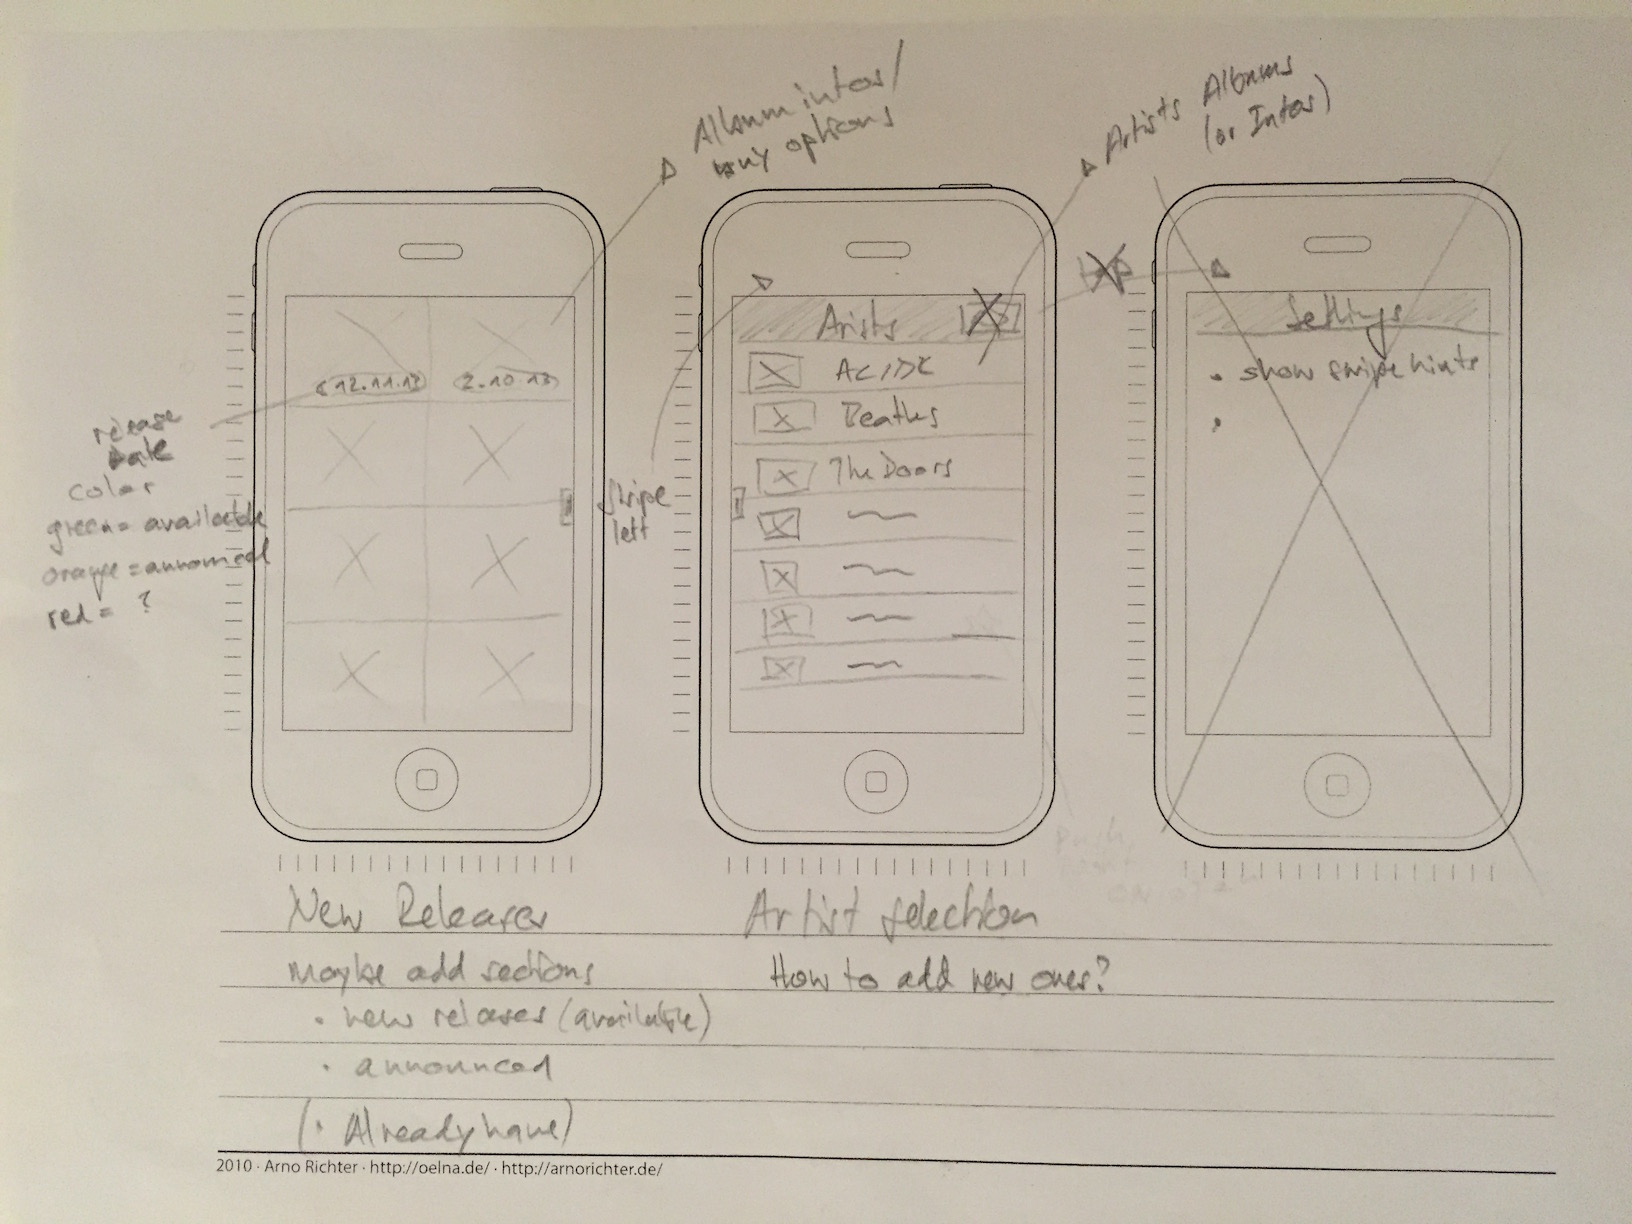 Album intos/
buy options
Artists Albums
(or Intos)
tap
(12.11.13) (2.10.13)
release
Date
color
green = available
orange = announced
red = ?
Swipe
left
Arists
AC/DC
Beatles
The Doors
Settings
• show swipe hints
•
New Releases
Maybe add sections
• new releases (available)
• announced
(• Already have)
Artist selection
How to add new ones?
2010 · Arno Richter · http://oelna.de/ · http://arnorichter.de/